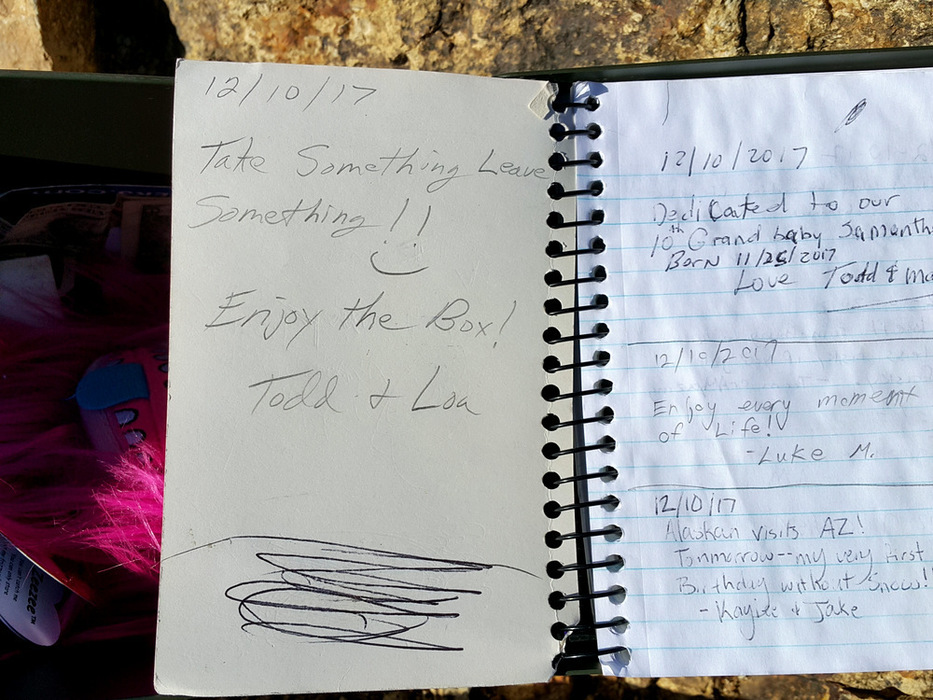 12/10/17
Take Something Leave
Something!!
Enjoy the Box!
Todd & Loa
12/10/2017
Dedicated to our
10th Grand baby Samantha
Born 11/26/2017
Love Todd &
12/10/2017
Enjoy every moment
of Life!
-Luke M.
12/10/17
Alaskan visits AZ!
Tommorrow--my very first
Birthday without Snow!!
- & Jake